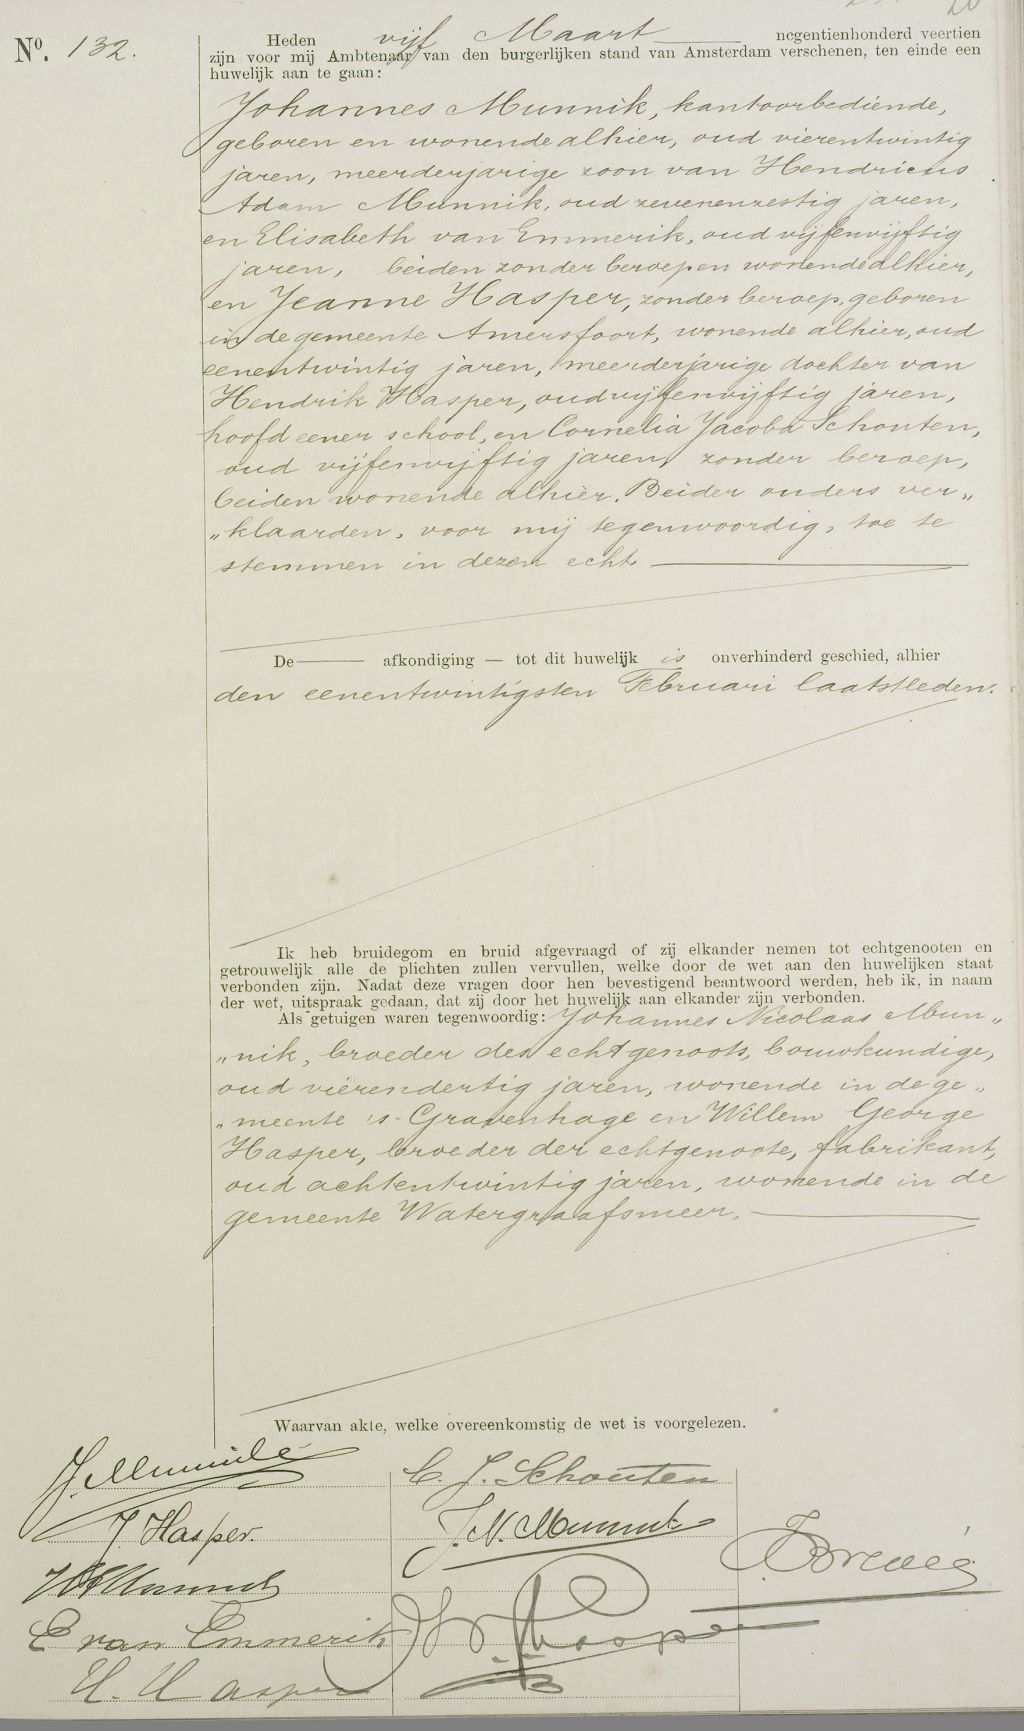 Nº. 132.
Heden vijf Maart negentienhonderd veertien
zijn voor mij Ambtenaar van den burgerlijken stand van Amsterdam verschenen, ten einde een
huwelijk aan te gaan:
Johannes Munnik, kantoorbediende,
geboren en wonende alhier, oud vierentwintig
jaren, meerderjarige zoon van Hendricus
Adam Munnik, oud zevenenzestig jaren,
en Elisabeth van Emmerik, oud vijfenvijftig
jaren, beiden zonder beroep en wonende alhier,
en Jeanne Hasper, zonder beroep, geboren
in de gemeente Amersfoort, wonende alhier, oud
eenentwintig jaren, meerderjarige dochter van
Hendrik Hasper, oud vijfenvijftig jaren,
hoofd eener school, en Cornelia Jacoba Schouten,
oud vijfenvijftig jaren, zonder beroep,
beiden wonende alhier. Beider ouders ver„
„klaarden, voor mij tegenwoordig, toe te
stemmen in dezen echt
De —— afkondiging — tot dit huwelijk is onverhinderd geschied, alhier
den eenentwintigsten Februari laatstleden.
Ik heb bruidegom en bruid afgevraagd of zij elkander nemen tot echtgenooten en
getrouwelijk alle de plichten zullen vervullen, welke door de wet aan den huwelijken staat
verbonden zijn. Nadat deze vragen door hen bevestigend beantwoord werden, heb ik, in naam
der wet, uitspraak gedaan, dat zij door het huwelijk aan elkander zijn verbonden.
Als getuigen waren tegenwoordig: Johannes Nicolaas Mun„
„nik, broeder des echtgenoots, bouwkundige,
oud vierendertig jaren, wonende in de ge„
„meente 's-Gravenhage en Willem George
Hasper, broeder der echtgenoote, fabrikant,
oud achtentwintig jaren, wonende in de
gemeente Watergraafsmeer.
Waarvan akte, welke overeenkomstig de wet is voorgelezen.
J. Munnik
J. Hasper.
HA Munnik
E van Emmerik
H. Hasper
C. J. Schouten
J. N. Munnik
W. G. Hasper